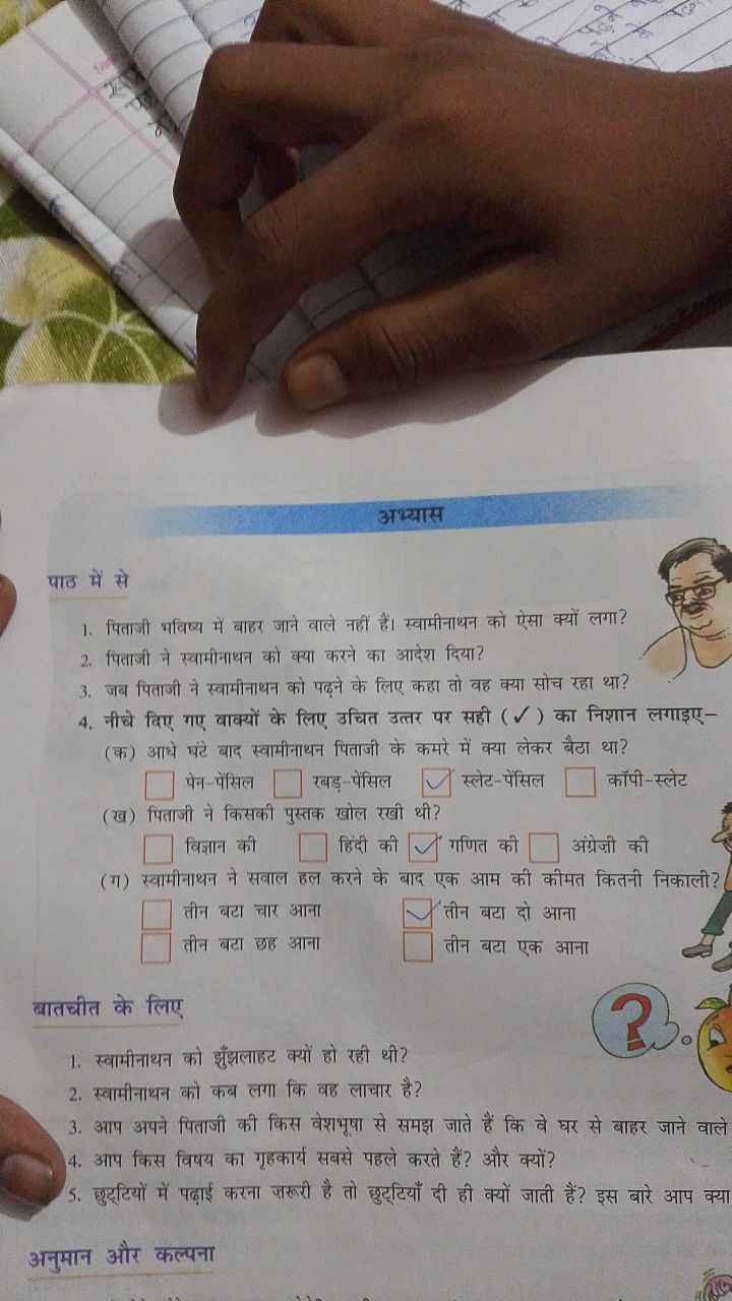 अभ्यास
पाठ में से
1. पिताजी भविष्य में बाहर जाने वाले नहीं हैं। स्वामीनाथन को ऐसा क्यों लगा?
2. पिताजी ने स्वामीनाथन को क्या करने का आदेश दिया?
3. जब पिताजी ने स्वामीनाथन को पढ़ने के लिए कहा तो वह क्या सोच रहा था?
4. नीचे दिए गए वाक्यों के लिए उचित उत्तर पर सही (✓) का निशान लगाइए–
(क) आधे घंटे बाद स्वामीनाथन पिताजी के कमरे में क्या लेकर बैठा था?
पेन-पेंसिल रबड़-पेंसिल ✓ स्लेट-पेंसिल कॉपी-स्लेट
(ख) पिताजी ने किसकी पुस्तक खोल रखी थी?
विज्ञान की हिंदी की ✓ गणित की अंग्रेज़ी की
(ग) स्वामीनाथन ने सवाल हल करने के बाद एक आम की कीमत कितनी निकाली?
तीन बटा चार आना ✓ तीन बटा दो आना
तीन बटा छह आना तीन बटा एक आना
बातचीत के लिए
1. स्वामीनाथन को झुँझलाहट क्यों हो रही थी?
2. स्वामीनाथन को कब लगा कि वह लाचार है?
3. आप अपने पिताजी की किस वेशभूषा से समझ जाते हैं कि वे घर से बाहर जाने वाले
4. आप किस विषय का गृहकार्य सबसे पहले करते हैं? और क्यों?
5. छुट्टियों में पढ़ाई करना ज़रूरी है तो छुट्टियाँ दी ही क्यों जाती हैं? इस बारे आप क्या
अनुमान और कल्पना